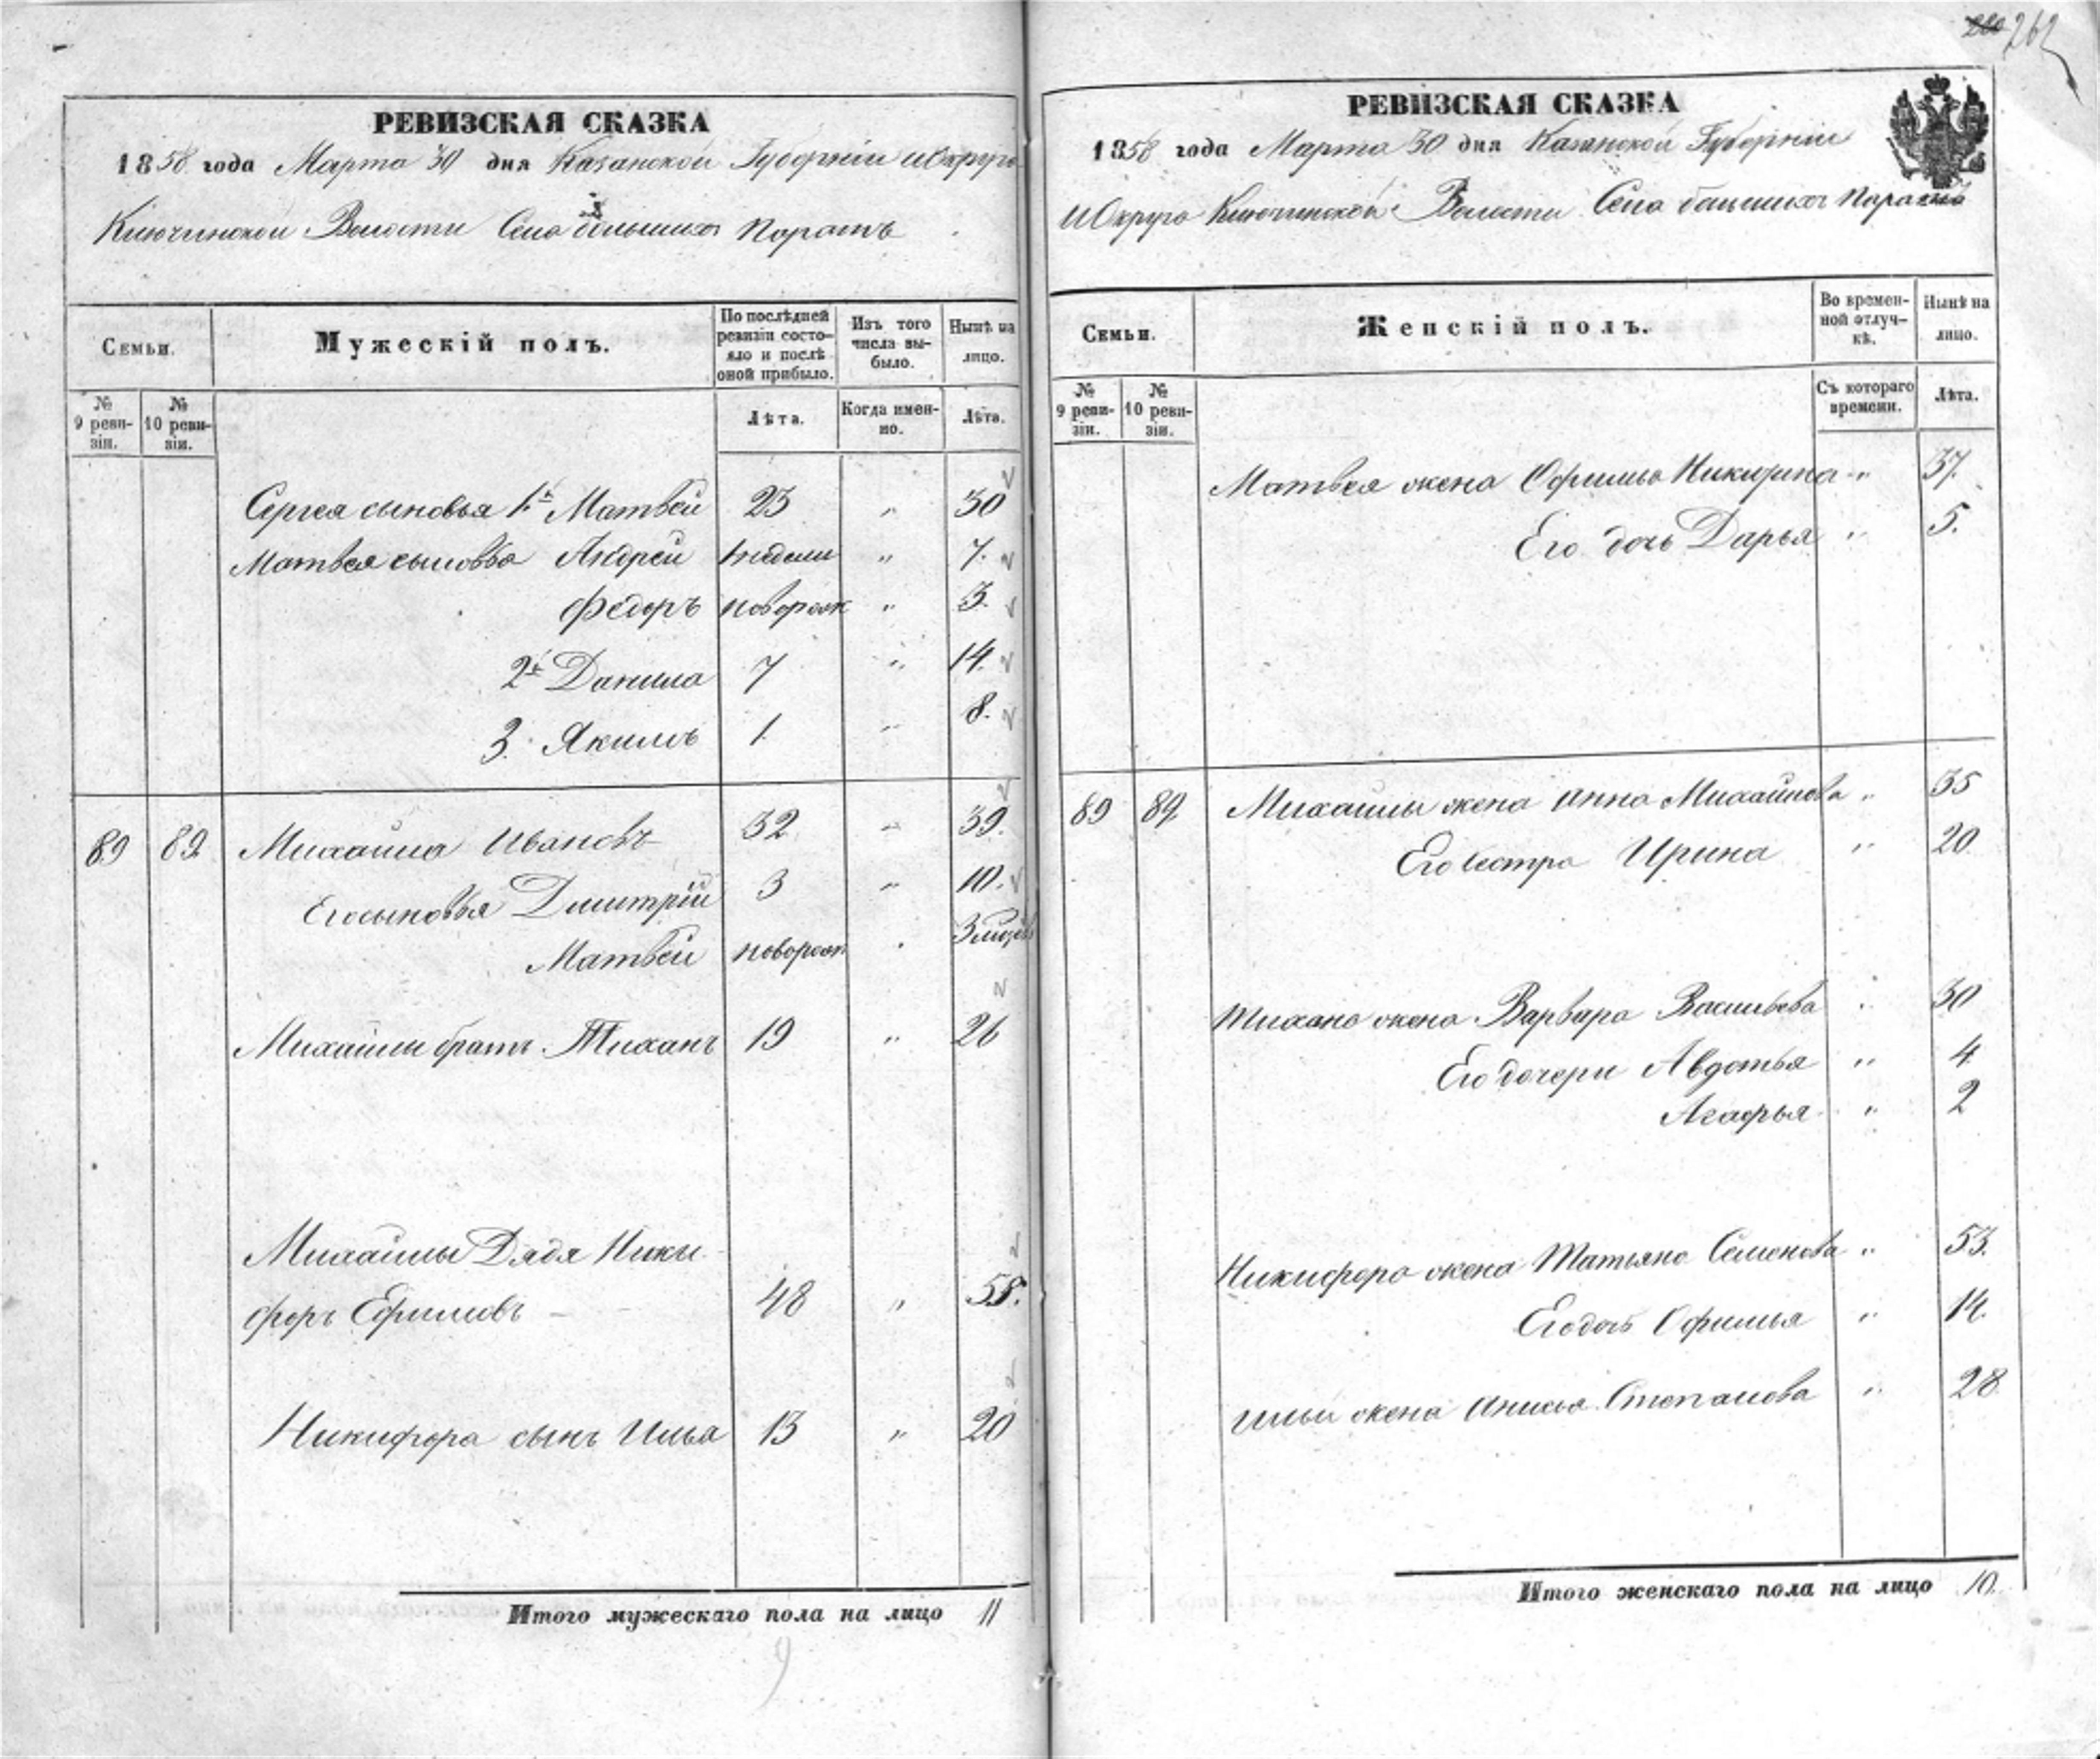 262
РЕВИЗСКАЯ СКАЗКА
1858 года Марта 30 дня Казанской Губерніи и Округа
Ключинской Волости Села большихъ Поратъ
Семьи.
Мужескій полъ.
По послѣдней ревизіи состояло и послѣ оной прибыло.
Изъ того числа выбыло.
Нынѣ на лицо.
№ 9 ревизіи.
№ 10 ревизіи.
Лѣта.
Когда именно.
Лѣта.
Сергея сыновья 1й Матвей 23 " 30
Матвея сыновья Андрей недели " 7.
Федоръ новорож " 3.
2й Данила 7 " 14.
3. Якимъ 1. " 8.
89 89. Михайла Ивановъ 32 " 39.
Его сыновья Дмитрій 3 " 10.
Матвей новорож " 3
Михайлы братъ Тиханъ 19 " 26
Михайлы Дядя Ники-
форъ Ефимовъ 48 " 55.
Никифора сынъ Илья 13 " 20
Итого мужескаго пола на лицо 11
9
РЕВИЗСКАЯ СКАЗКА
1858 года Марта 30 дня Казанской Губерніи
и Округа Ключинской Волости Села большихъ Поратъ
Семьи.
Женскій полъ.
Во временной отлучкѣ.
Нынѣ на лицо.
№ 9 ревизіи.
№ 10 ревизіи.
Съ котораго времени.
Лѣта.
Матвея жена Офимья Никифрова " 37.
Его дочь Дарья " 5.
89 89 Михайлы жена Анна Михайлова " 35
Его Сестра Ирина " 20
Тихана жена Варвара Васильева " 30
Его дочери Авдотья " 4
Агафья " 2
Никифора жена Татьяна Семенова " 53.
Его дочь Офимья " 14.
Ильи жена Анисья Степанова " 28
Итого женскаго пола на лицо 10.